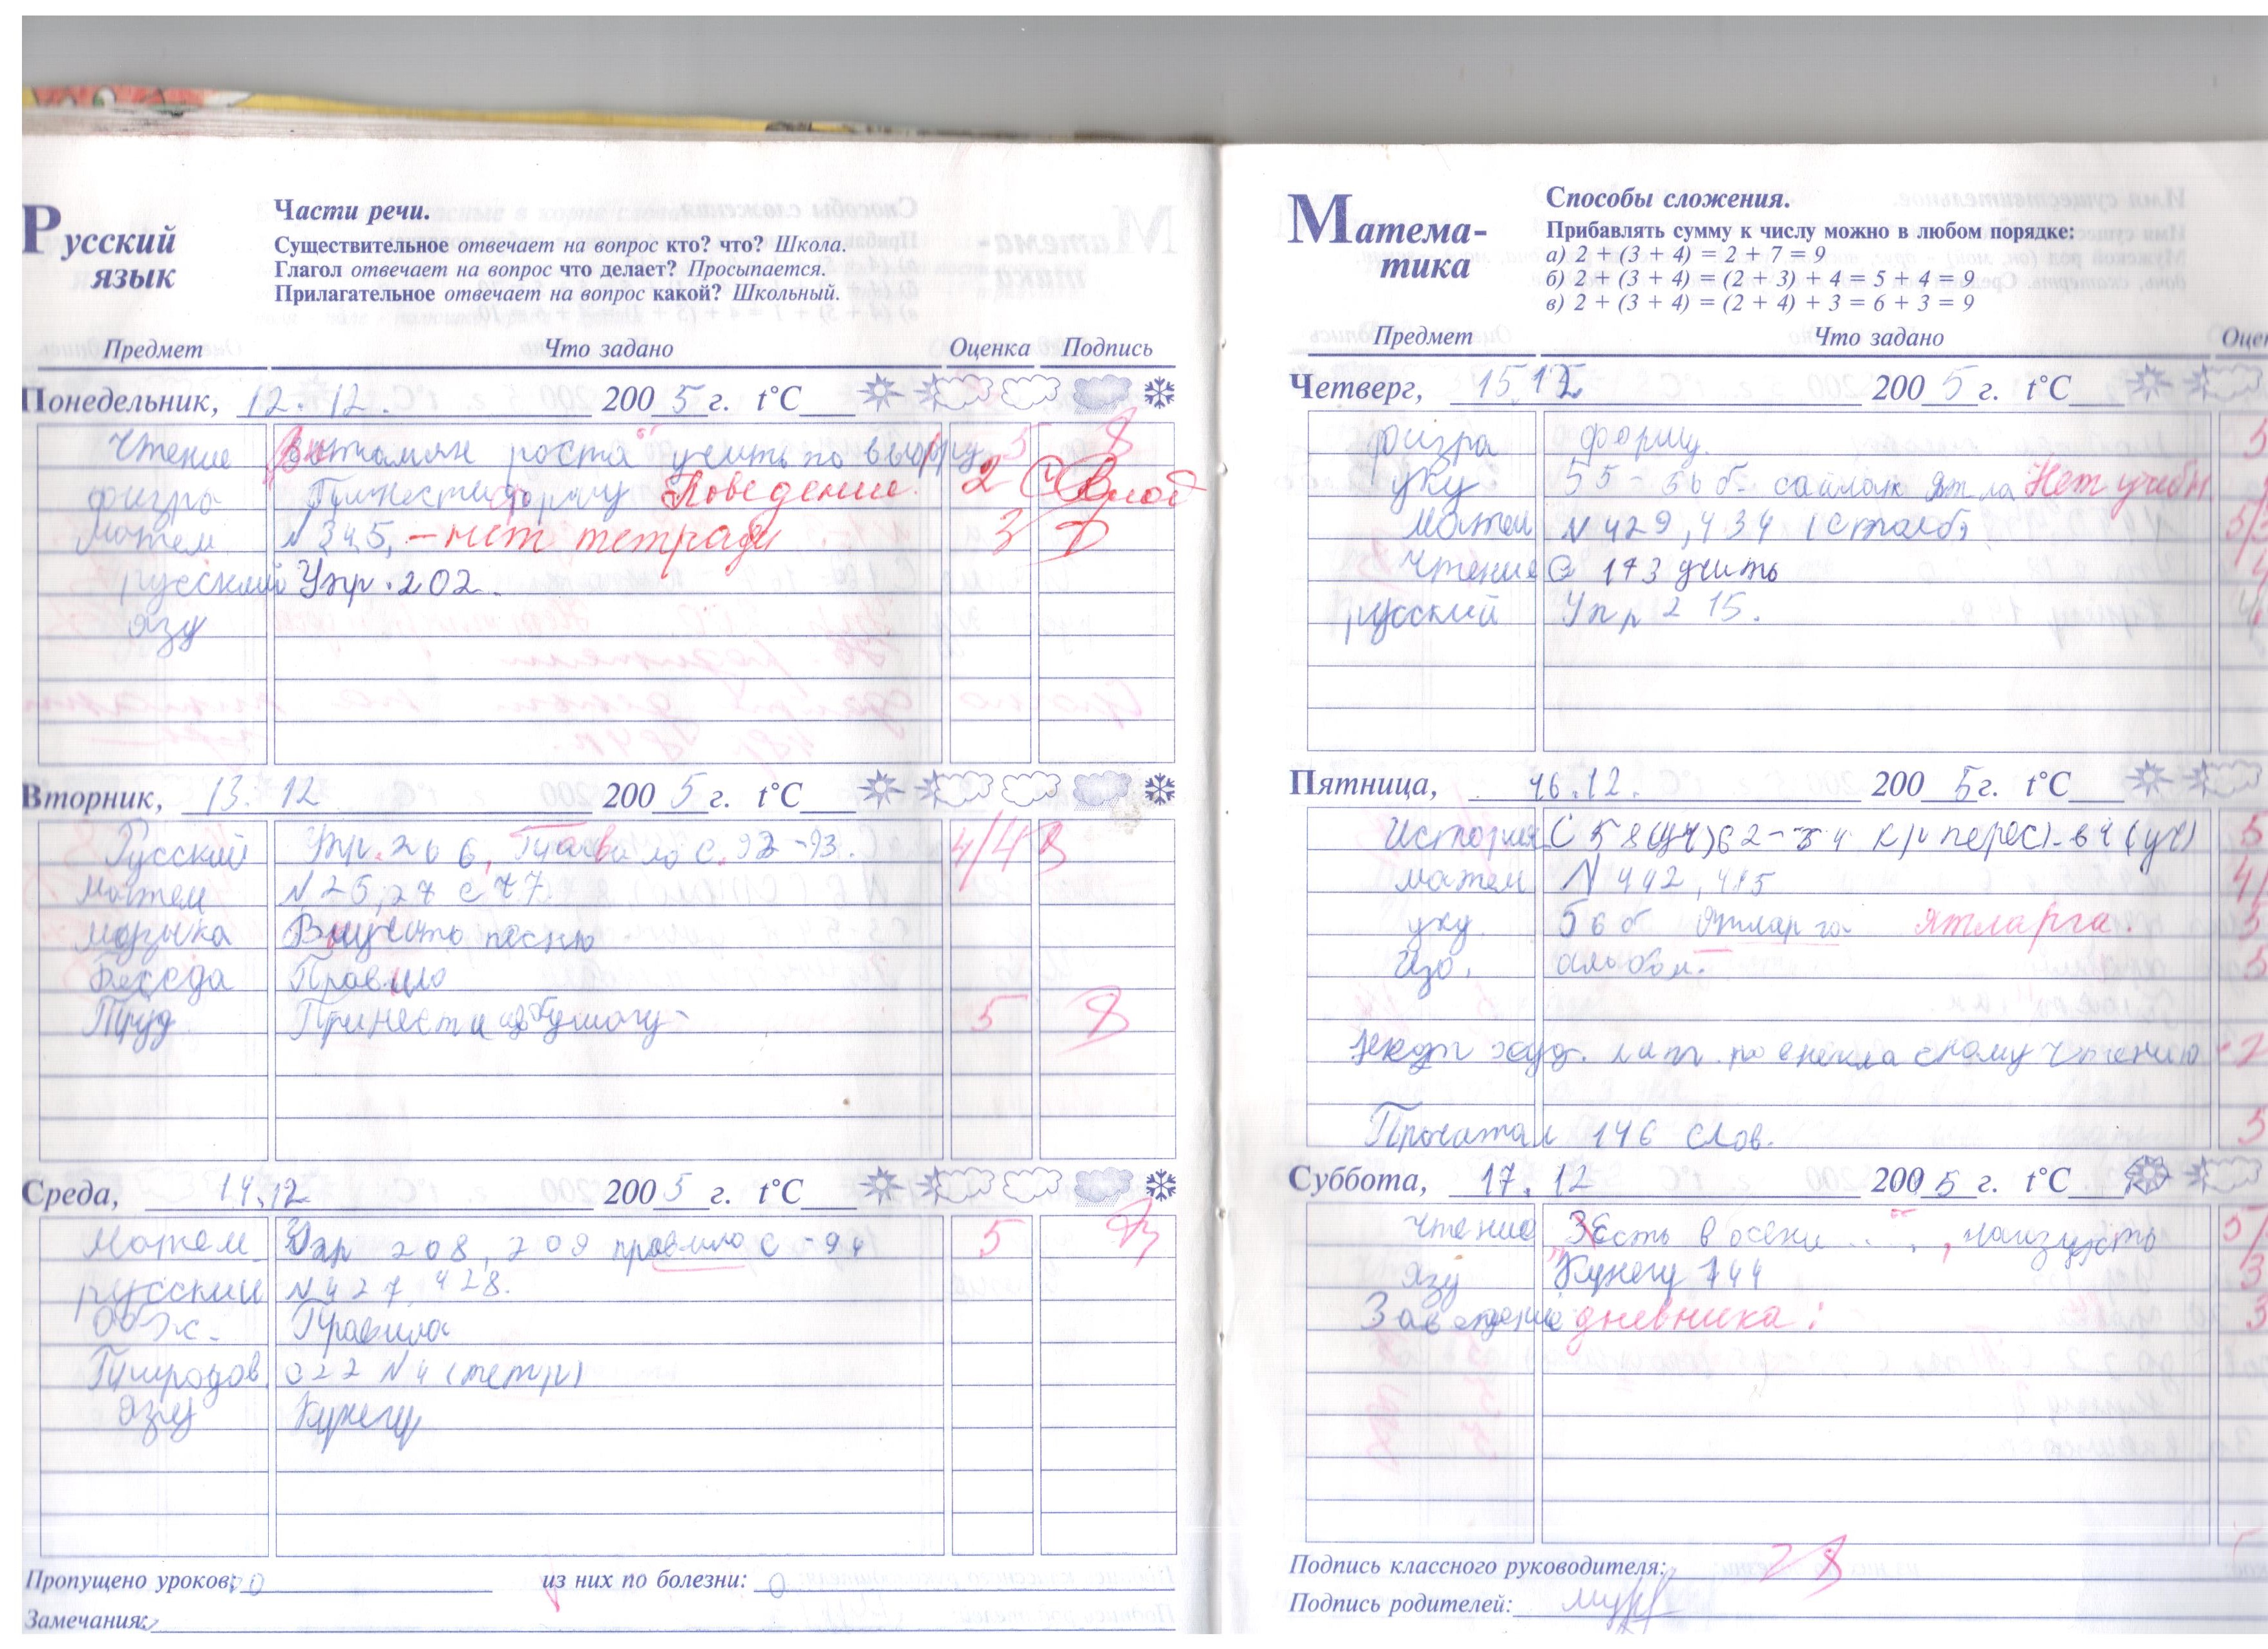 Русский язык
Части речи.
Существительное отвечает на вопрос кто? что? Школа.
Глагол отвечает на вопрос что делает? Просыпается.
Прилагательное отвечает на вопрос какой? Школьный.
Предмет Что задано Оценка Подпись
Понедельник, 12. 12. 2005 г. t°C
Чтение роста учить по выбору 5
физра Принести форму Поведение. 2
матем N 345, - нет тетради 3
русский Упр. 202.
язу
Вторник, 13. 12 2005 г. t°C
Русский Упр. 206, Правило с. 92-93. 4/4
матем N 25, 27 с 77.
музыка Выучить песню
Беседа Правило
Труд Принести бумагу 5
Среда, 14.12 2005 г. t°C
Матем Упр 208, 209 правило с-94 5
русский N 427, 428.
ОБЖ. Правила
Природов с 22 N 4 (тетр)
язу Кунегу
Пропущено уроков: 0 из них по болезни: 0
Замечания:
Матема-
тика
Способы сложения.
Прибавлять сумму к числу можно в любом порядке:
а) 2 + (3 + 4) = 2 + 7 = 9
б) 2 + (3 + 4) = (2 + 3) + 4 = 5 + 4 = 9
в) 2 + (3 + 4) = (2 + 4) + 3 = 6 + 3 = 9
Предмет Что задано Оцен
Четверг, 15.12 2005 г. t°C
физра форму.
уку 55-56 б. сайлап Нет учебн
матем N 429, 434 1 столб
Чтение С 173 учить
русский Упр 215.
Пятница, 16.12. 2005 г. t°C
История С 58 (уч) 5
матем N 442, 415
уку 56 б ятларга ятларга. 5
Изо. альбом. 5
худ. лит. по чтению
Прочитал 146 слов. 5
Суббота, 17. 12 2005 г. t°C
чтение "Есть в осени ...", наизусть
язу Кунегу 144 3
Заведение дневника: 3
Подпись классного руководителя:
Подпись родителей: